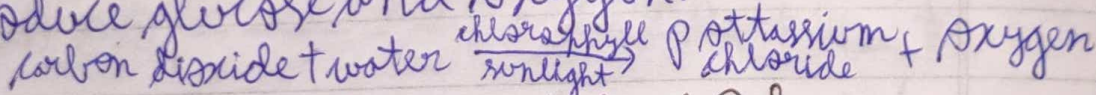 oduce glucose and oxygen
carbon dioxide + water chlorophyll sunlight → pottassium chloride + oxygen